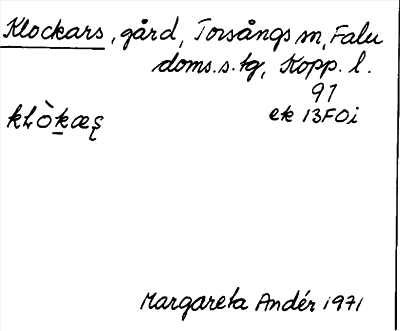 Klockars, gård, Torsångs m, Falu
doms.s.tg, Kopp. l.
91
ek 13FOi
kƚò̱kæʂ
Margareta Andér 1971